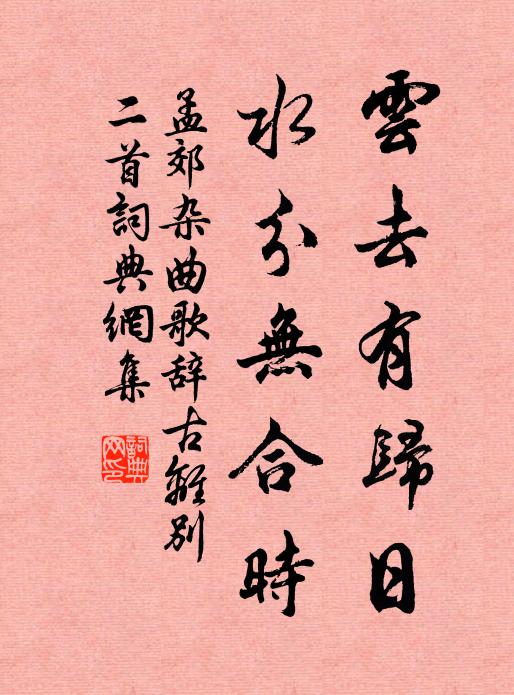 雲去有歸日
水分無合時
孟郊杂曲歌辞古離别
二首詞典網集
詞典网印